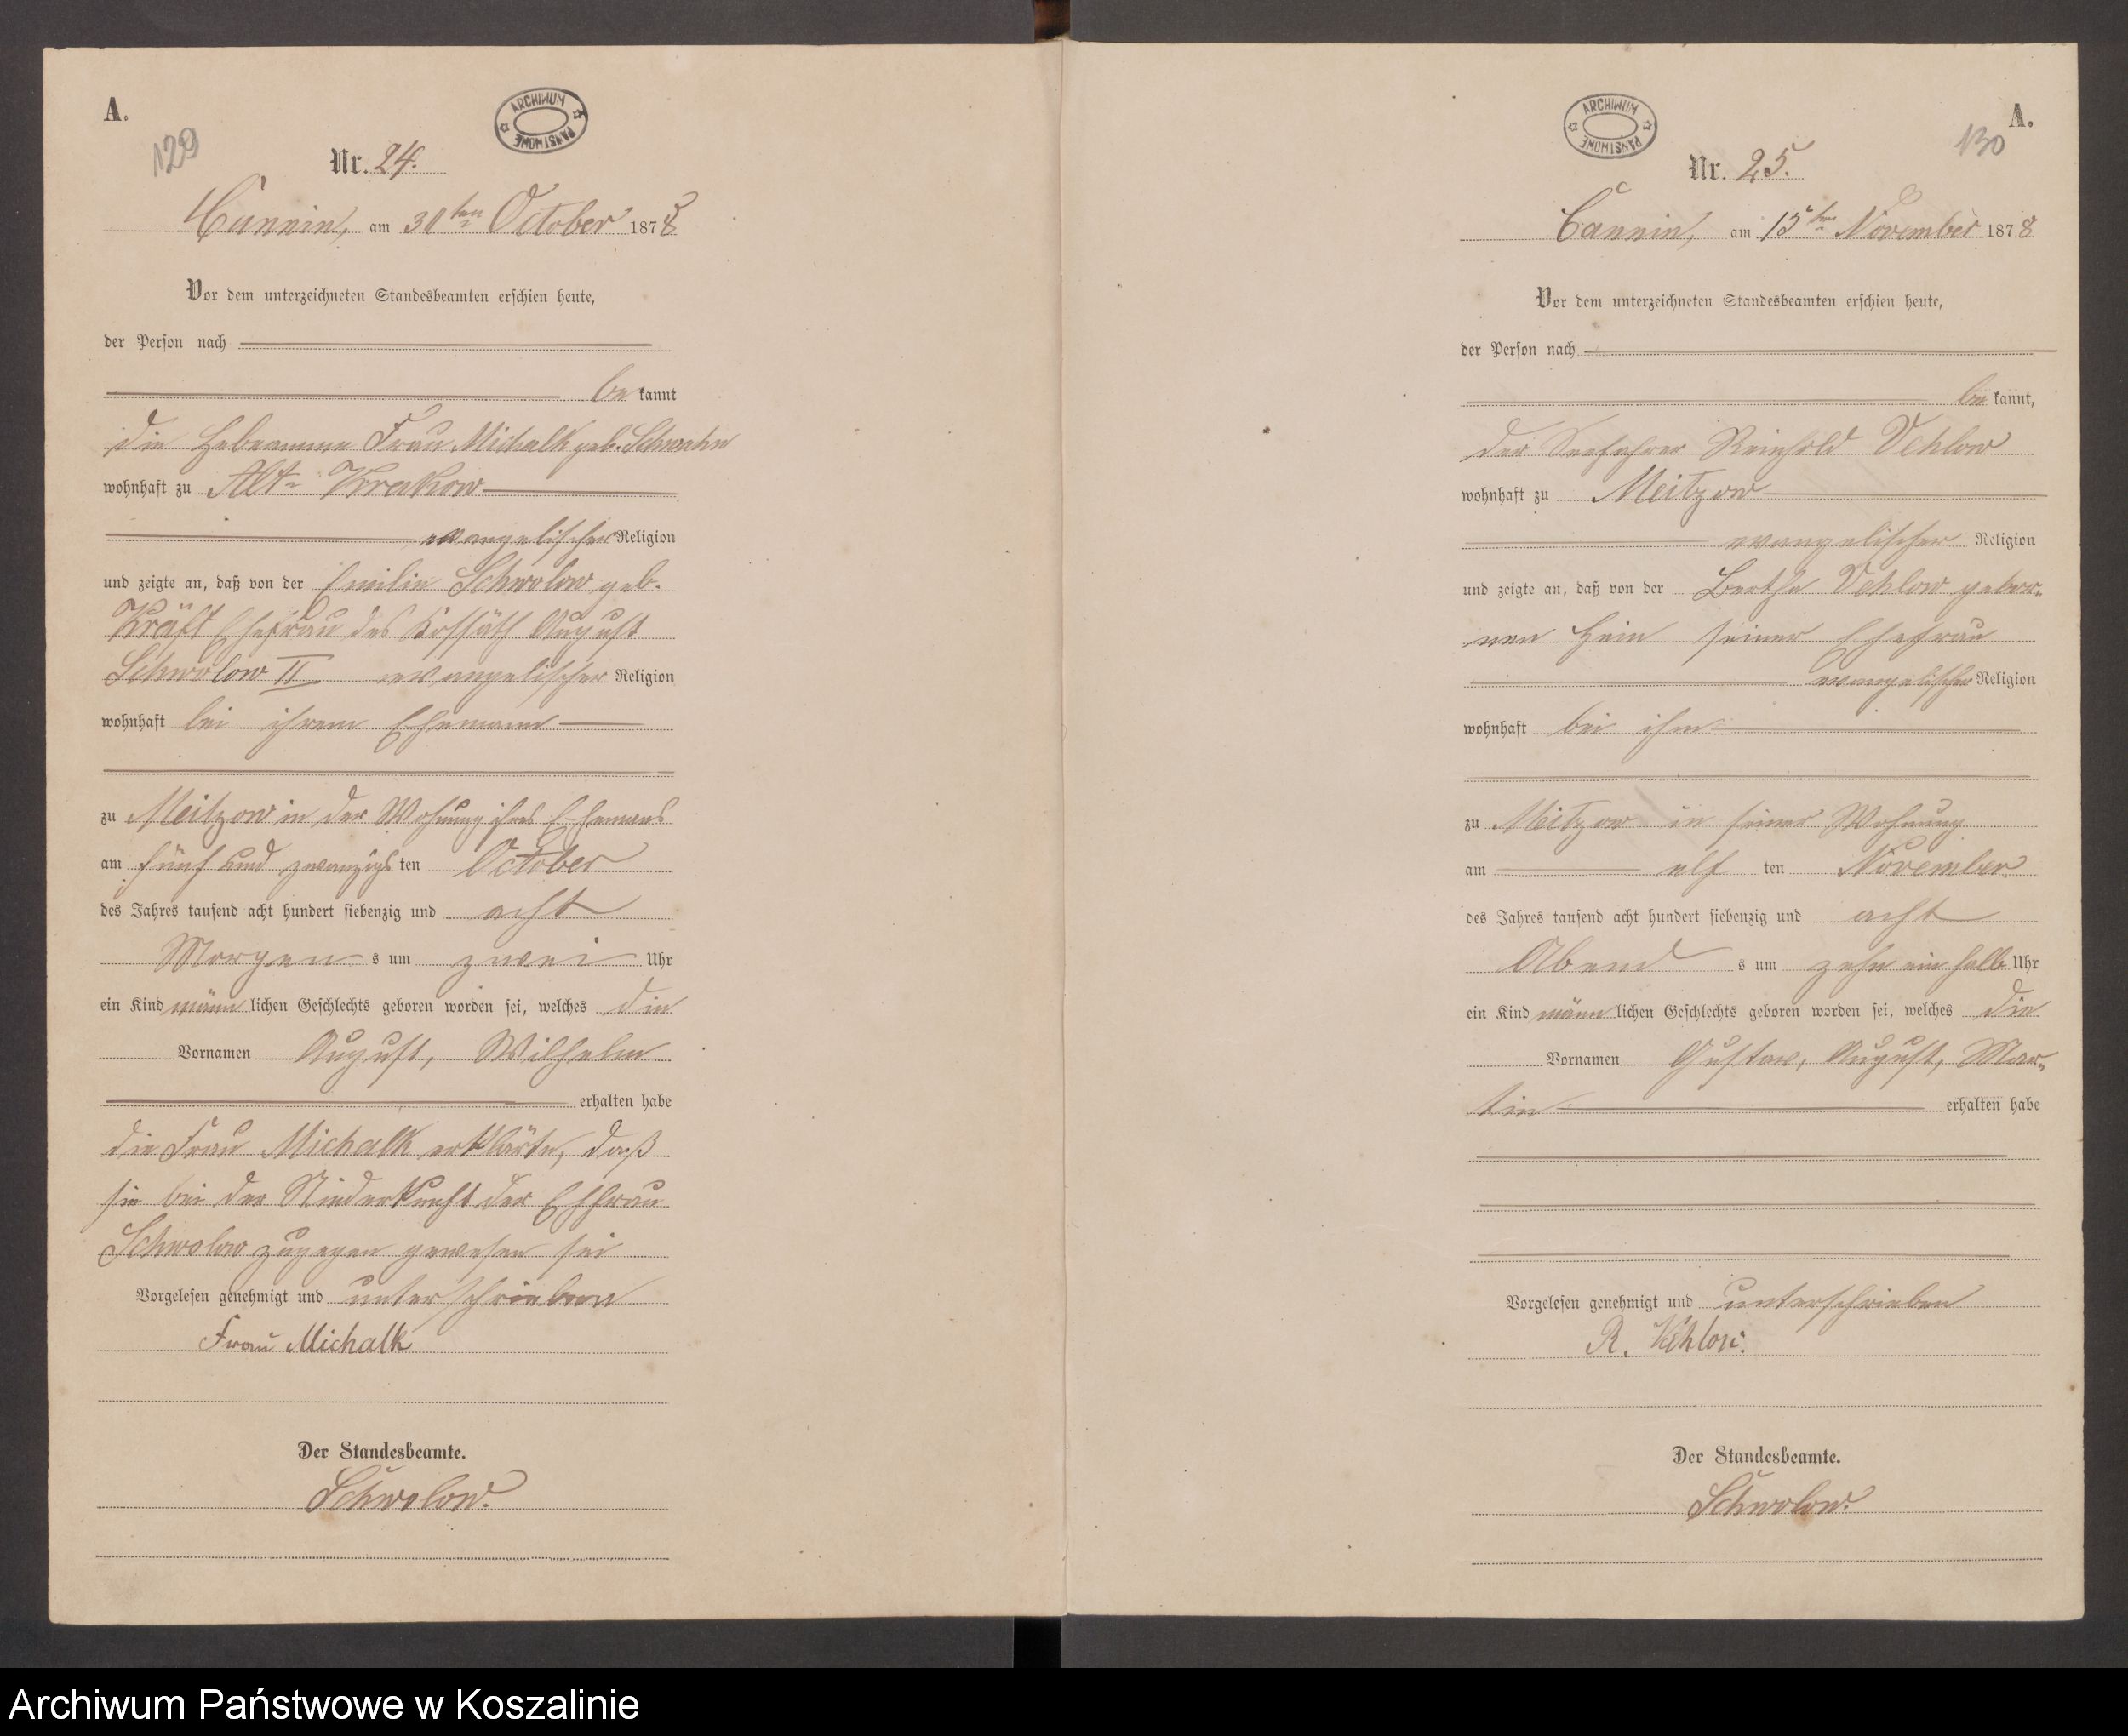 A.
129
ARCHIWUM PAŃSTWOWE
Nr. 24.
Cannin, am 30ten October 1878
Vor dem unterzeichneten Standesbeamten erschien heute,
der Person nach
bekannt
die Hebeamme Frau Michalk geb. Schwahn
wohnhaft zu Alt-Krakow
evangelischer Religion
und zeigte an, daß von der Emilie Schwolow geb.
Kräft Ehefrau des Kossäth August
Schwolow II evangelischer Religion
wohnhaft bei ihrem Ehemann
zu Meitzow in der Wohnung ihres Ehemans
am fünf und zwanzigsten October
des Jahres tausend acht hundert siebenzig und acht
Morgens um zwei Uhr
ein Kind männlichen Geschlechts geboren worden sei, welches die
Vornamen August, Wilhelm
erhalten habe
die Frau Michalk erklärte, daß
sie bei der Niederkunft der Ehfrau
Schwolow zugegen gewesen sei
Vorgelesen genehmigt und unterschrieben
Frau Michalk
Der Standesbeamte.
Schwolow.
A.
130
ARCHIWUM PAŃSTWOWE
Nr. 25.
Cannin, am 13ten November 1878
Vor dem unterzeichneten Standesbeamten erschien heute,
der Person nach
bekannt,
der Seefahrer Reinhold Vehlow
wohnhaft zu Meitzow
evangelischer Religion
und zeigte an, daß von der Bertha Vehlow gebor-
nen Hein seiner Ehefrau
evangelischer Religion
wohnhaft bei ihm
zu Meitzow in seiner Wohnung
am elf ten November
des Jahres tausend acht hundert siebenzig und acht
Abends um zehn ein halb Uhr
ein Kind männlichen Geschlechts geboren worden sei, welches die
Vornamen Gustav, August, Mar-
tin erhalten habe
Vorgelesen genehmigt und unterschrieben
R. Vehlow.
Der Standesbeamte.
Schwolow.
Archiwum Państwowe w Koszalinie